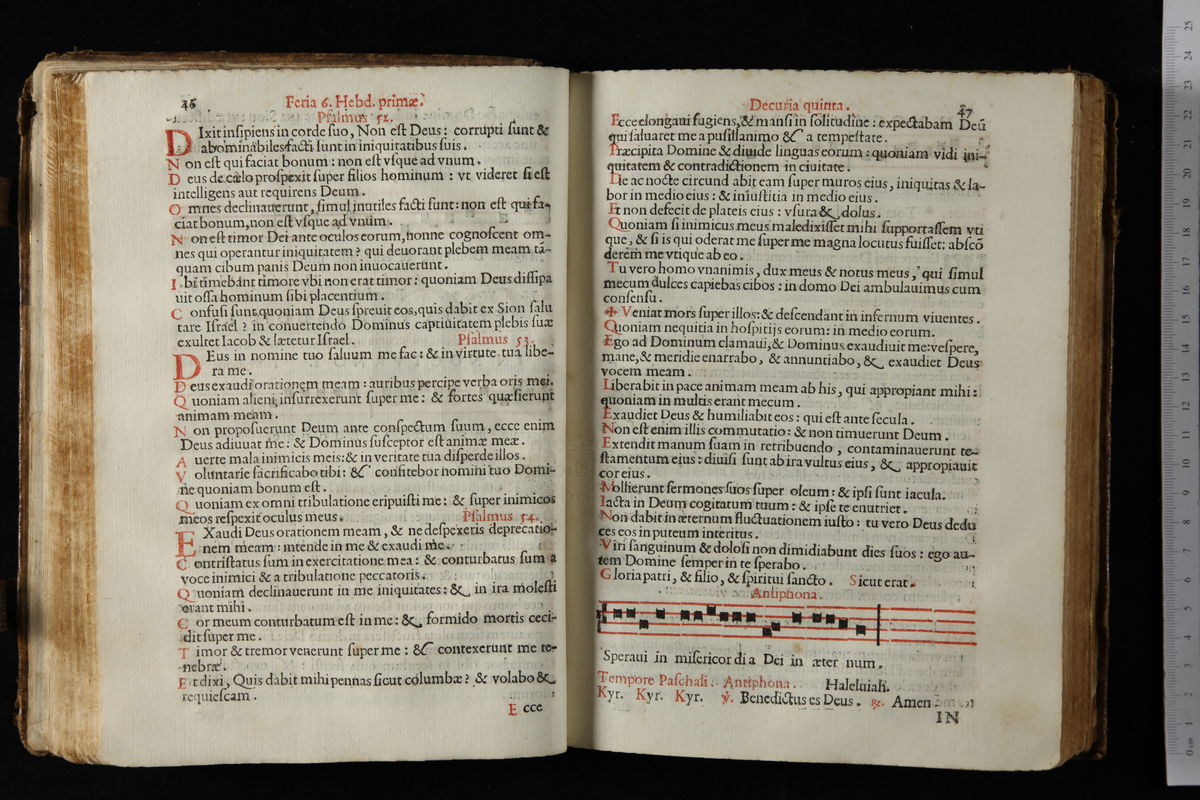 46
Feria 6. Hebd. primæ.
Psalmus 52.
DIxit insipiens in corde suo, Non est Deus: corrupti sunt &
abominabiles facti sunt in iniquitatibus suis.
Non est qui faciat bonum: non est vsque ad vnum.
Deus de cælo prospexit super filios hominum: vt videret si est
intelligens aut requirens Deum.
Omnes declinauerunt, simul inutiles facti sunt: non est qui fa-
ciat bonum, non est vsque ad vnum.
Non est timor Dei ante oculos eorum, nonne cognoscent om-
nes qui operantur iniquitatem? qui deuorant plebem meam tã-
quam cibum panis Deum non inuocauerunt.
Ibi timebánt timore vbi non erat timor: quoniam Deus dissipa
uit ossa hominum sibi placentium.
Confusi sunt quoniam Deus spreuit eos, quis dabit ex Sion salu
tare Israël? in conuertendo Dominus captiuitatem plebis suæ
exultet Iacob & lætetur Israel. Psalmus 53.
DEus in nomine tuo saluum me fac: & in virtute tua libe-
ra me.
Deus exaudi orationem meam: auribus percipe verba oris mei.
Quoniam alieni insurrexerunt super me: & fortes quæsierunt
animam meam.
Non proposuerunt Deum ante conspectum suum, ecce enim
Deus adiuuat me: & Dominus susceptor est animæ meæ.
Auerte mala inimicis meis: & in veritate tua disperde illos.
Voluntarie sacrificabo tibi: & confitebor nomini tuo Domi-
ne quoniam bonum est.
Quoniam ex omni tribulatione eripuisti me: & super inimicos
meos respexit oculus meus. Psalmus 54.
EXaudi Deus orationem meam, & ne despexeris deprecatio-
nem meam: intende in me & exaudi me.
Contristatus sum in exercitatione mea: & conturbatus sum a
voce inimici & a tribulatione peccatoris.
Quoniam declinauerunt in me iniquitates: & in ira molesti
erant mihi.
Cor meum conturbatum est in me: & formido mortis ceci-
dit super me.
Timor & tremor venerunt super me: & contexerunt me te-
nebræ.
Et dixi, Quis dabit mihi pennas sicut columbæ? & volabo &
requiescam.
Ecce
Decuria quinta.
47
Ecce elongaui fugiens, & mansi in solitudine: expectabam Deũ
qui saluaret me a pusillanimo & a tempestate.
Præcipita Domine & diuide linguas eorum: quoniam vidi ini-
quitatem & contradictionem in ciuitate.
Die ac nocte circundabit eam super muros eius, iniquitas & la-
bor in medio eius: & iniustitia in medio eius.
Et non defecit de plateis eius: vsura & dolus.
Quoniam si inimicus meus maledixisset mihi supportassem vti
que, & si is qui oderat me super me magna locutus fuisset: abscõ
derem me vtique ab eo.
Tu vero homo vnanimis, dux meus & notus meus, qui simul
mecum dulces capiebas cibos: in domo Dei ambulauimus cum
consensu.
✠ Veniat mors super illos: & descendant in infernum viuentes.
Quoniam nequitia in hospitijs eorum: in medio eorum.
Ego ad Dominum clamaui, & Dominus exaudiuit me: vespere,
mane, & meridie enarrabo, & annuntiabo, & exaudiet Deus
vocem meam.
Liberabit in pace animam meam ab his, qui appropiant mihi:
quoniam in multis erant mecum.
Exaudiet Deus & humiliabit eos: qui est ante secula.
Non est enim illis commutatio: & non timuerunt Deum.
Extendit manum suam in retribuendo, contaminauerunt te-
stamentum eius: diuisi sunt ab ira vultus eius, & appropiauit
cor eius.
Mollierunt sermones suos super oleum: & ipsi sunt iacula.
Iacta in Deum cogitatum tuum: & ipse te enutriet.
Non dabit in æternum fluctuationem iusto: tu vero Deus dedu
ces eos in puteum interitus.
Viri sanguinum & dolosi non dimidiabunt dies suos: ego au-
tem Domine semper in te sperabo.
Gloria patri, & filio, & spiritui sancto. Sicut erat.
Antiphona.
Speraui in misericor dia Dei in æter num.
Tempore Paschali. Antiphona. Haleluiah.
Kyr. Kyr. Kyr. ℣. Benedictus es Deus. ℟. Amen
IN